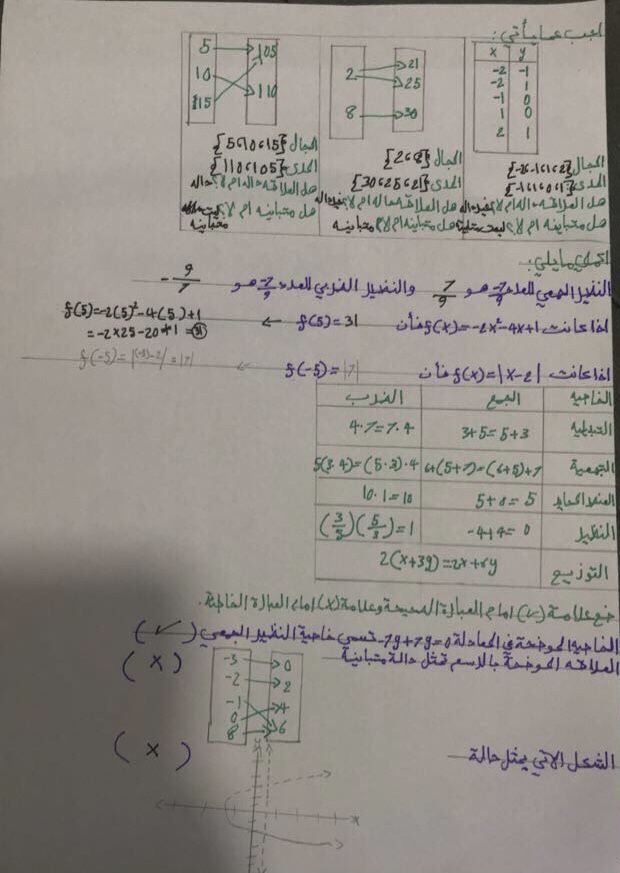 اجب عما يأتي:
x y
-2 -1
-2 1
-1 0
1 0
2 1
2 → 21
25
8 → 30
5 → 105
10
15
110
المجال {-2،-1،1،2}
المدى {-1،0،1}
هل العلاقه داله ام لا؟
هل متباينه ام لا؟ ليست متباينة
المجال {2،8}
المدى {30،25،21}
هل العلاقه داله ام لا؟
هل متباينه ام لا؟ متباينه
المجال {5،10،15}
المدى {110،105}
هل العلاقه داله ام لا؟ داله
هل متباينه ام لا؟ متباينه
اكملي مايلي:
النظير الجمعي للعدد -7/9 هو 7/9 والنظير الضربي للعدد -7/9 هو -9/7
اذا كانت f(x)=-2x²-4x+1 فأن f(5)=31 ←
f(5)=-2(5)²-4(5)+1
=-2×25-20+1=31
اذا كانت f(x)=|x-2| فأن f(-5)=|7| ← f(-5)=|(-5)-2|=|7|
الخاصيه الجمع الضرب
التبديلية 3+5=5+3 4·7=7·4
التجميعية 6+(5+7)=(6+5)+7 5(3·4)=(5·3)·4
العنصر المحايد 5+0=5 10·1=10
النظير -4+4=0 (3/5)(5/3)=1
التوزيع 2(x+3y)=2x+6y
ضع علامة (✓) امام العبارة الصحيحة وعلامة (x) امام العبارة الخاطئة.
الخاصيه الموضحة في المعادلة -7y+7y=0 تسمى خاصية النظير الجمعي (✓)
العلاقه الموضحة بالاسهم تمثل دالة متباينة (x)
-3 0
-2 2
-1 4
0 6
8
الشكل الاتي يمثل دالة (x)
x